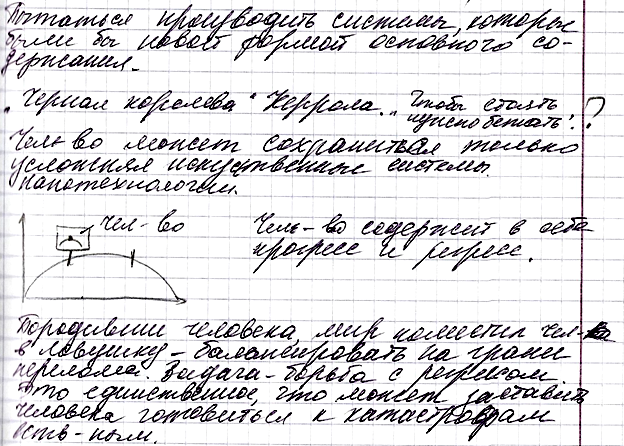 Пытаться производить системы, которые
были бы новой формой основного со-
держания.
„Черная королева" Керрола. „Чтобы стоять
нужно бежать!"?
Чел-во может сохраниться только
усложняя искусственные системы.
Нанотехнологии.
чел-во
Чел-во содержит в себе
прогресс и регресс.
Породивши человека, мир поместил чел-ка
в ловушку – балансировать на грани
перелома. Задача – борьба с регрессом.
Это единственное, что может заставить
человека готовиться к катастрофам
еств-ным.